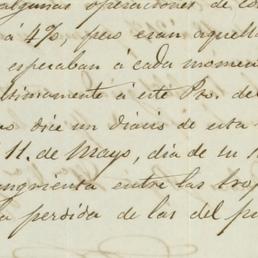 algunas operaciones de co
á 4%, pero eran aquella
esperaban á cada momen
timamente á este Pto. del
dice un diario de esta
11. de Mayo, dia de su
angrienta entre las trop
a perdida de las del p